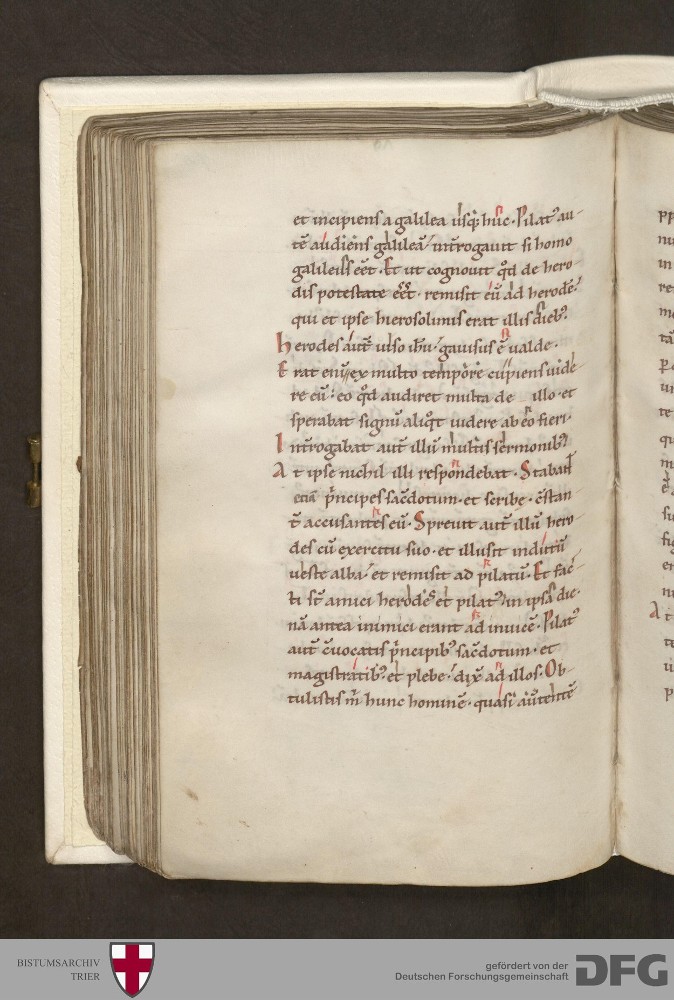 et incipiens a galilea usq; huc. Pilat᷒ au-
tē audiens galileā int̄rogauit si homo
galileus eēt. Et ut cognouit qd̄ de hero-
dis potestate eēt. remisit eū ad herodē.
qui et ipse hierosolimis erat illis dieb᷒.
Herodes aut̄ uiso ih̄u. gauisus ē ualde.
Erat enī ex multo tempore cupiens uide
re eū. eo qd̄ audiret multa de illo. et
sperabat signū aliqt̄ uidere ab eo fieri.
Int̄rogabat aut̄ illū multis sermonib᷒.
At ipse nichil illi respondebat. Stabant
etiā p̄ncipes sac̄dotum. et scribe. c̄stan
t̄ accusantes eū. Spreuit aut̄ illū hero-
des cū exercitu suo. et illusit indutū
ueste alba. et remisit ad pilatū. Et fac-
ti st̄ amici herodes et pilat᷒ in ipsa die.
nā antea inimici erant ad inuicē. Pilat᷒
aut̄ c̄uocatis p̄ncipib᷒ sac̄dotum. et
magistratib᷒. et plebe. dix̄ ad illos. Ob-
tulistis m̄ hunc hominē. quasi auertentē
BISTUMSARCHIV
TRIER
gefördert von der
Deutschen Forschungsgemeinschaft
DFG